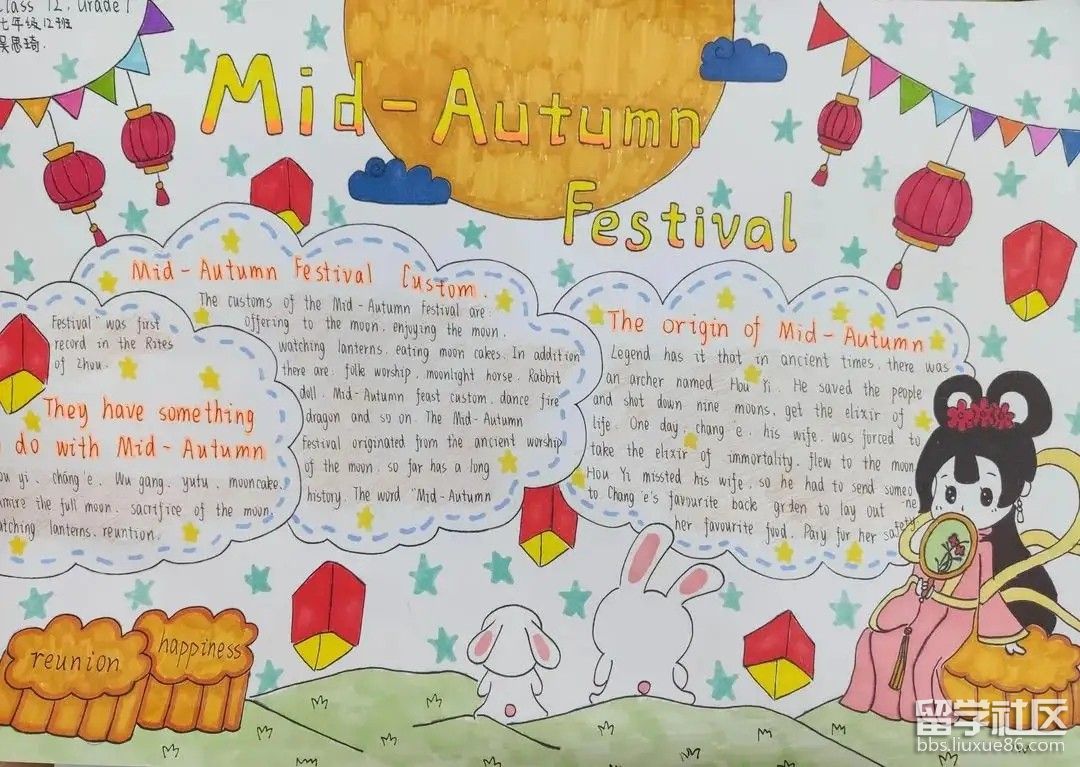 Class 12, Grade 7
七年级12班
吴思琦
Mid-Autumn
Festival
Mid-Autumn Festival Custom.
The customs of the Mid-Autumn Festival are:
offering to the moon, enjoying the moon,
watching lanterns, eating moon cakes. In addition
there are: folk worship, moonlight horse. Rabbit
doll. Mid-Autumn feast custom, dance fire
dragon and so on. The Mid-Autumn
Festival originated from the ancient worship
of the moon, so far has a long
history. The word "Mid-Autumn
Festival" was first
record in the Rites
of Zhou.
They have something
do with Mid-Autumn
yi, cháng'e. Wu gang, yutu, mooncake,
the full moon, sacrifice of the moon,
lanterns, reuntion.
The origin of Mid-Autumn
Legend has it that in ancient times, there was
an archer named Hou Yi. He saved the people
and shot down nine moons, get the elixir of
life. One day, chang'e, his wife, was forced to
take the elixir of immortality, flew to the moon
Hou Yi missted his wife, so he had to send someo
to Chang'e's favourite back grden to lay out -ne
her favourite food. Pary for her safety
reunion
happiness
留学社区
bbs.liuxue86.com